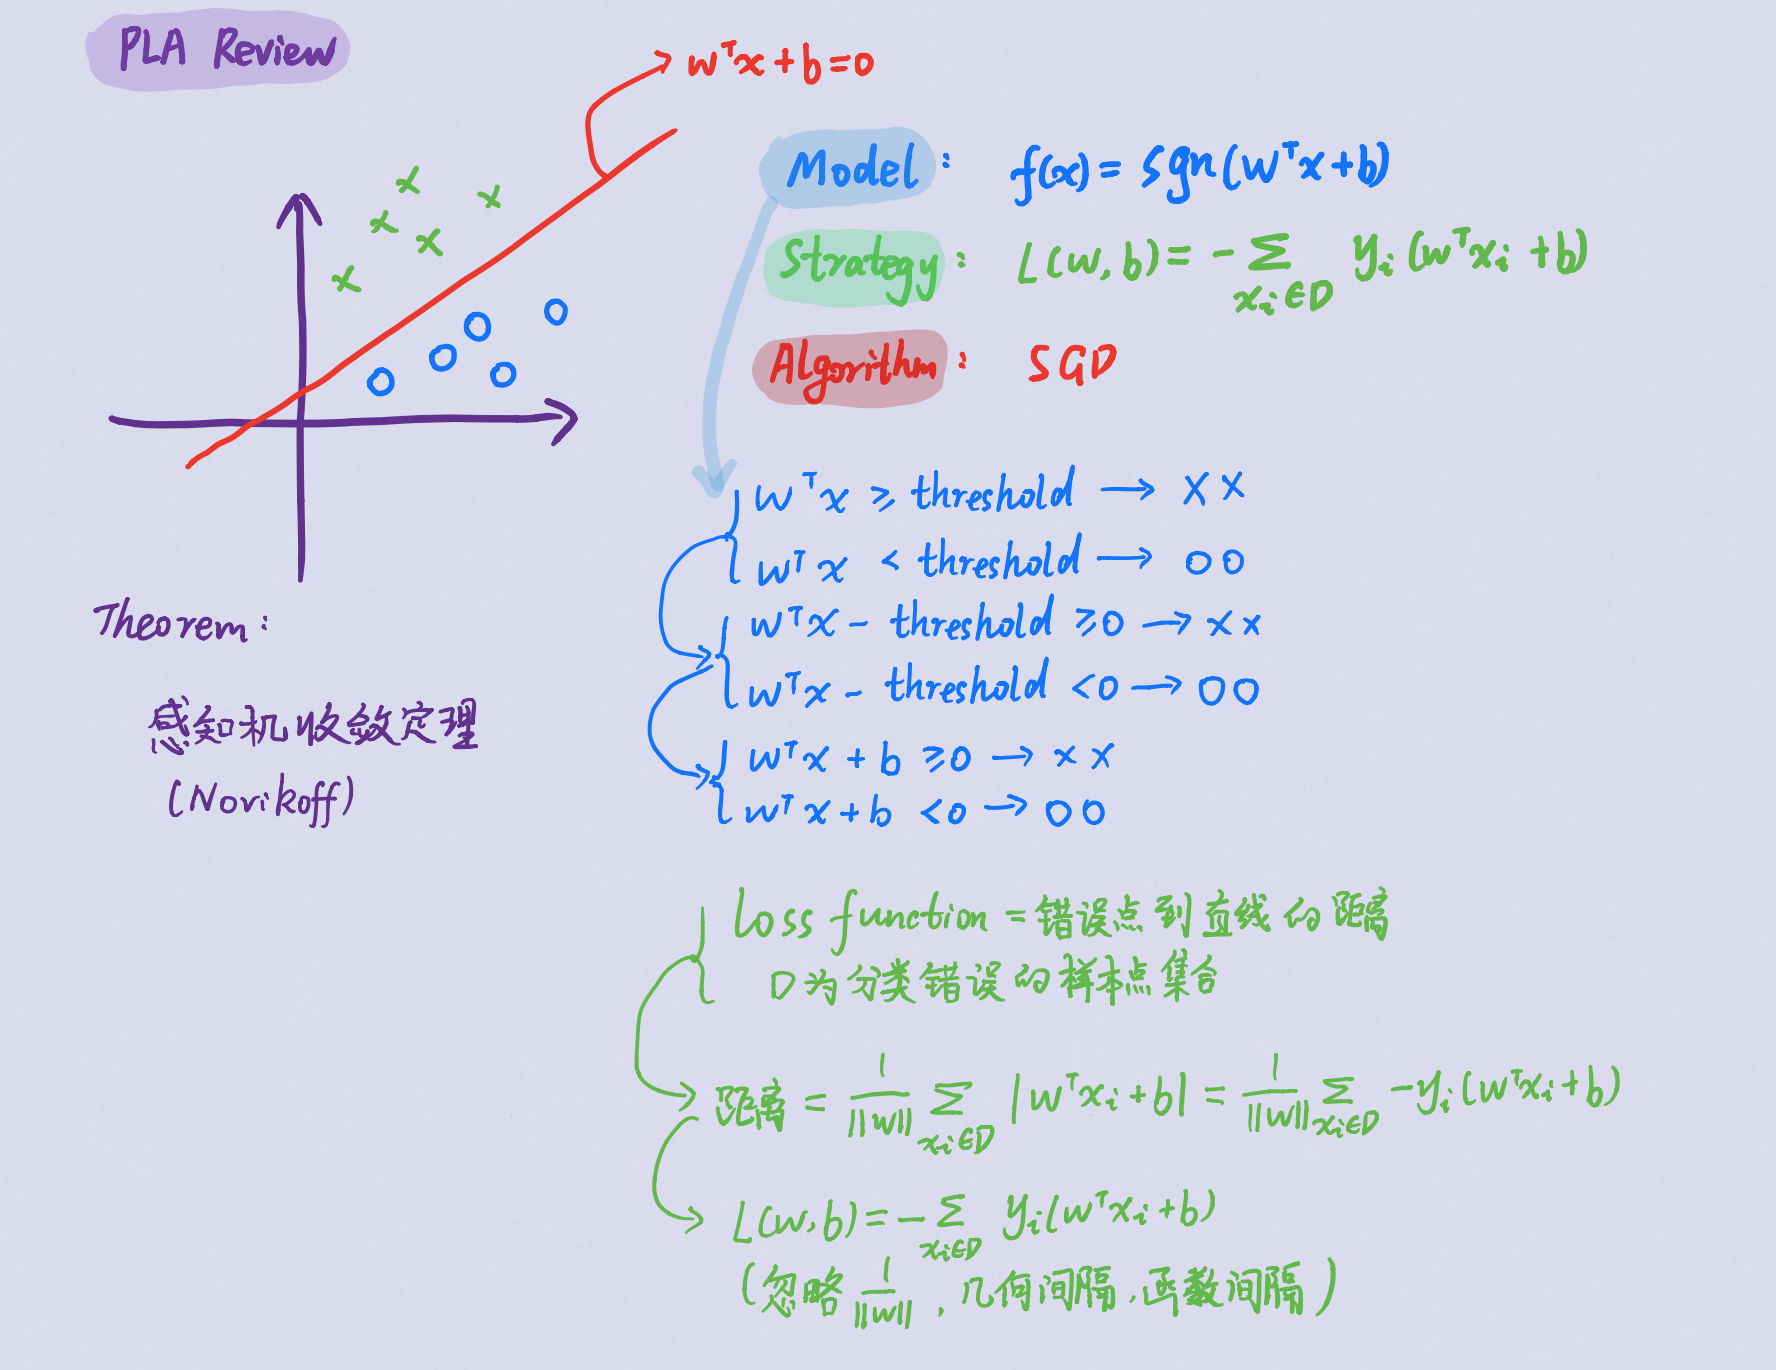 PLA Review
wᵀx+b=0
Model: f(x)= sgn(wᵀx+b)
Strategy: L(w,b)= -∑_{xᵢ∈D} yᵢ(wᵀxᵢ+b)
Algorithm: SGD
wᵀx ≥ threshold → XX
wᵀx < threshold → OO
wᵀx - threshold ≥0 → XX
wᵀx - threshold <0 → OO
wᵀx + b ≥0 → XX
wᵀx+b <0 → OO
Theorem:
感知机收敛定理
(Novikoff)
loss function = 错误点到直线的距离
D为分类错误的样本点集合
距离 = 1/||w|| ∑_{xᵢ∈D} |wᵀxᵢ+b| = 1/||w|| ∑_{xᵢ∈D} -yᵢ(wᵀxᵢ+b)
L(w,b)=-∑_{xᵢ∈D} yᵢ(wᵀxᵢ+b)
(忽略 1/||w||, 几何间隔,函数间隔)